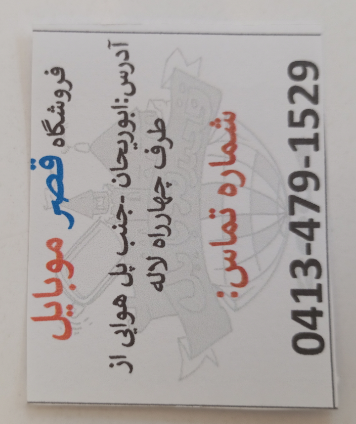 فروشگاه قصر موبایل
آدرس:ابوریحان-جنب پل هوایی از
طرف چهارراه لاله
شماره تماس:
0413-479-1529